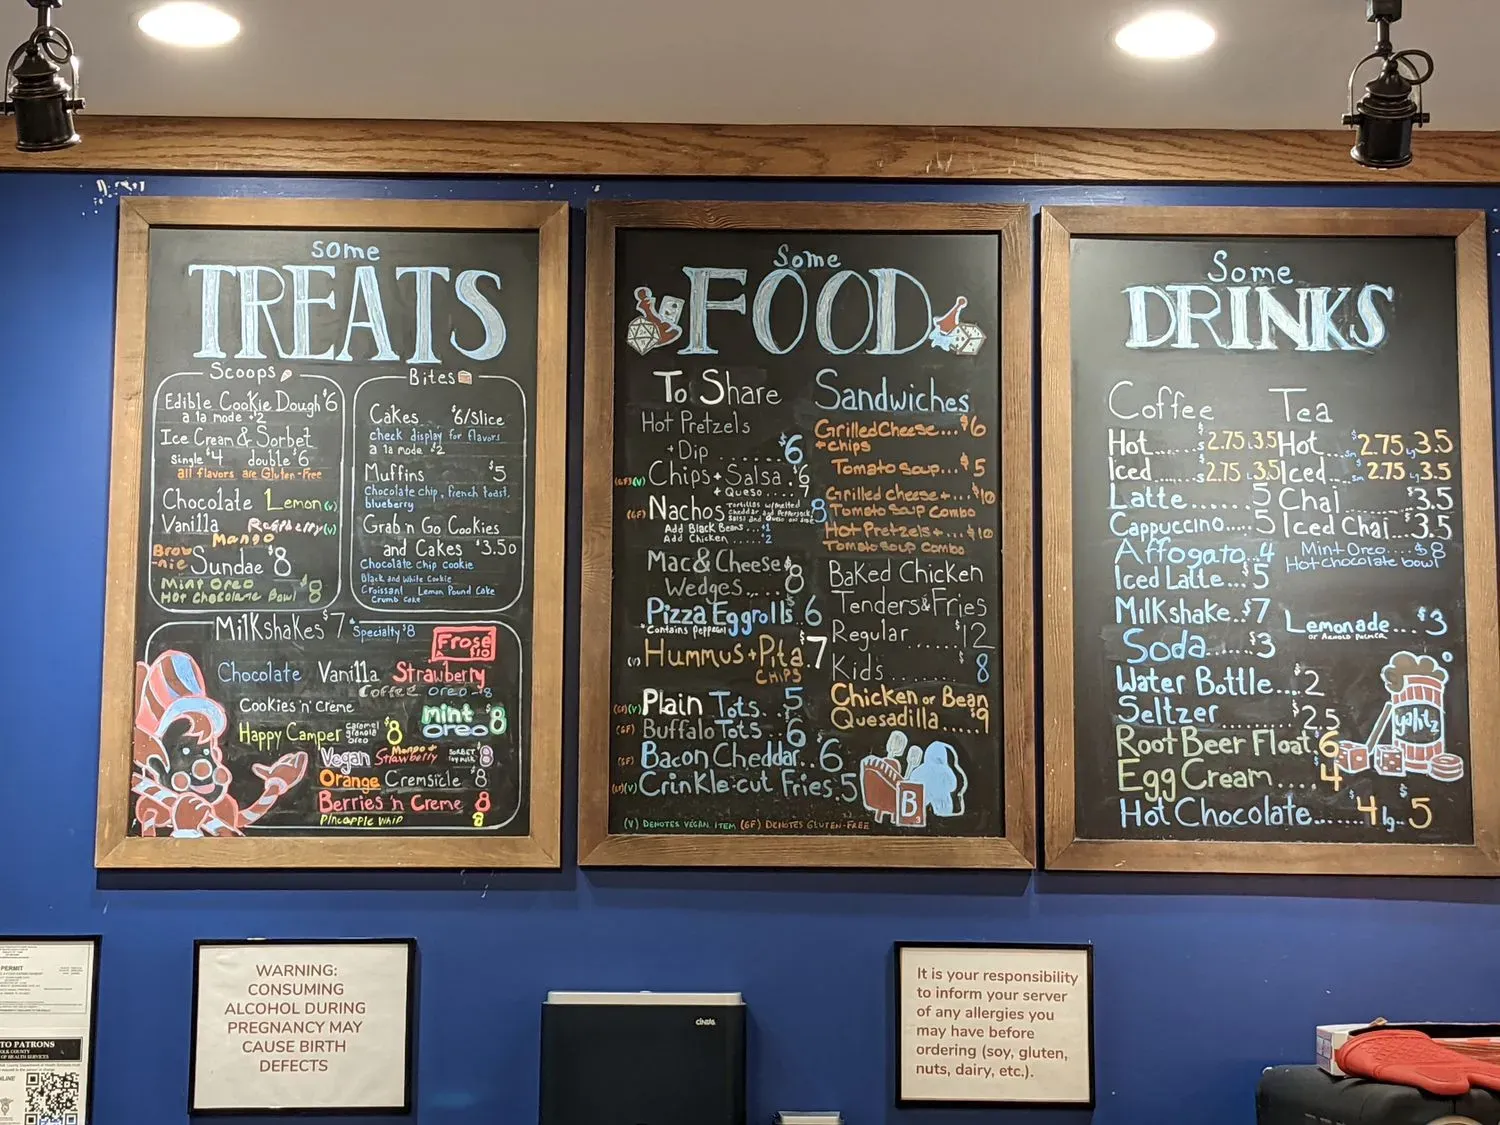 some
TREATS
Scoops
Edible Cookie Dough $6
a la mode +2
Ice Cream & Sorbet
single $4 double $6
all flavors are Gluten-Free
Chocolate Lemon (v)
Vanilla Raspberry (v)
Mango
Brow-nie Sundae $8
Mint Oreo
Hot Chocolate Bowl $8
Bites
Cakes... $6/slice
check display for flavors
a la mode $2
Muffins $5
Chocolate chip, french toast,
blueberry
Grab 'n Go Cookies
and Cakes $3.50
Chocolate chip cookie
Black and White Cookie
Croissant Lemon Pound Cake
Crumb Cake
Milkshakes $7 *Specialty $8
Frosé
$10
Chocolate Vanilla Strawberry
Coffee Oreo - 8
Cookies 'n' Creme
mint
oreo $8
Happy Camper caramel granola oreo $8
Vegan Mango + Strawberry SORBET $8
Orange Cremsicle $8
Berries 'n Creme 8
Pineapple Whip 8
Some
FOOD
To Share
Hot Pretzels
+ Dip ........ $6
(GF)(V) Chips + Salsa $6
+ Queso .... 7
(GF) Nachos Tortillas w/melted cheddar and Pepperjack, salsa and queso on side 8
Add Black Beans ... $1
Add Chicken ... $2
Mac & Cheese
Wedges..... $8
Pizza Eggrolls.. $6
*Contains pepperoni
(V) Hummus + Pita $7
CHIPS
(GF)(V) Plain Tots.. $5
(GF) Buffalo Tots.. 6
(GF) Bacon Cheddar.. $6
(GF)(V) Crinkle-cut Fries. $5
Sandwiches
Grilled Cheese... $6
+ chips
Tomato Soup... $5
Grilled Cheese +... $10
Tomato Soup Combo
Hot Pretzels +.. $10
Tomato Soup Combo
Baked Chicken
Tenders & Fries
Regular ....... $12
Kids ........ $8
Chicken or Bean
Quesadilla ..... $9
B
3
(V) DENOTES VEGAN ITEM (GF) DENOTES GLUTEN-FREE
Some
DRINKS
Coffee
Hot...... s 2.75 L 3.5
Iced...... s 2.75 L 3.5
Latte....... 5
Cappuccino..... 5
Affogato. 4
Iced Latte... $5
Milkshake.. $7
Soda...... $3
Water Bottle.... $2
Seltzer ........ $2.5
Root Beer Float. $6
Egg Cream .... $4
Hot Chocolate....... $4 lg.. $5
Tea
Hot... sm $2.75 Lg 3.5
Iced... sm $2.75 Lg 3.5
Chai ........ $3.5
Iced Chai... $3.5
Mint Oreo.... $8
Hot chocolate bowl
Lemonade... $3
or Arnold Palmer
yahtz
PERMIT
TO PATRONS
WARNING:
CONSUMING
ALCOHOL DURING
PREGNANCY MAY
CAUSE BIRTH
DEFECTS
cintas
It is your responsibility
to inform your server
of any allergies you
may have before
ordering (soy, gluten,
nuts, dairy, etc.).